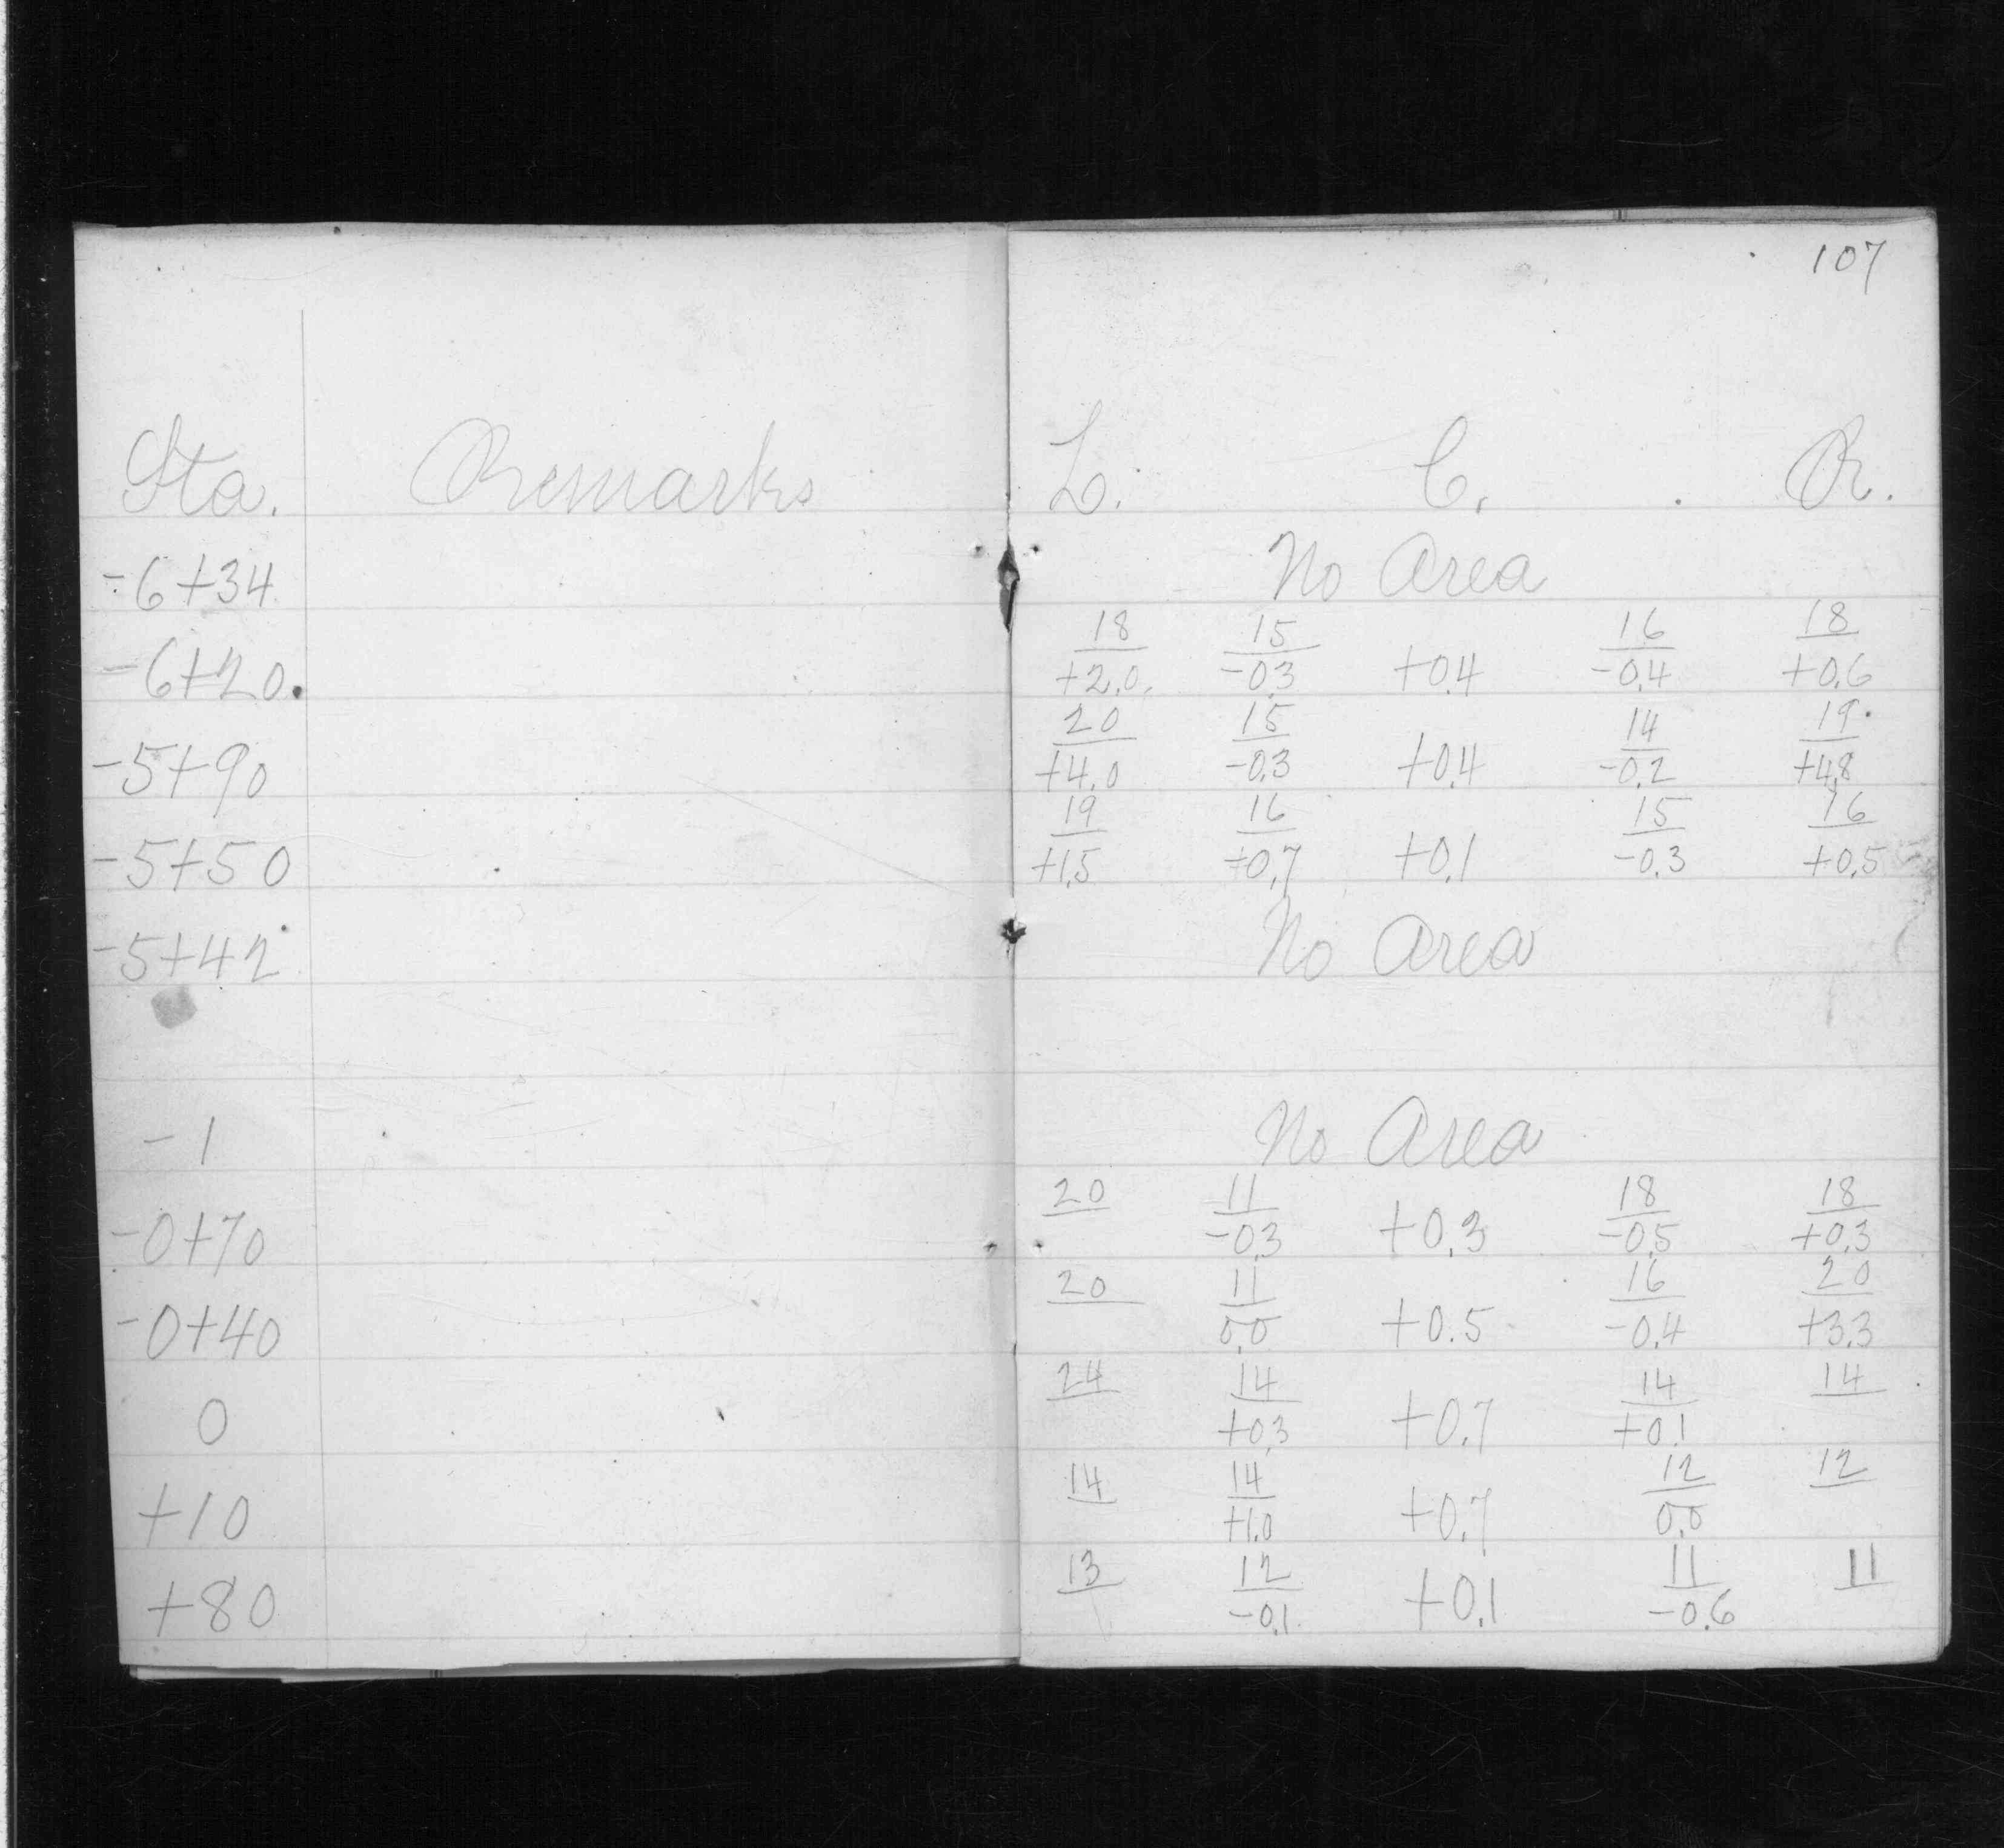 107
Sta. Remarks L. C. R.
-6+34 No Area
18 15 16 18
-6+20. +2.0. -0.3 +0.4 -0.4 +0.6
20 15 14 19.
-5+90 +4.0 -0.3 +0.4 -0.2 +4.8
19 16 15 16
-5+50 +1.5 +0.7 +0.1 -0.3 +0.5
-5+42 No Area
-1 No Area
20 11 18 18
-0+70 -0.3 +0.3 -0.5 +0.3
20 11 16 20
-0+40 0.0 +0.5 -0.4 +3.3
24 14 14 14
0 +0.3 +0.7 +0.1
14 14 12 12
+10 +1.0 +0.7 0.0
13 12 11 11
+80 -0.1 +0.1 -0.6